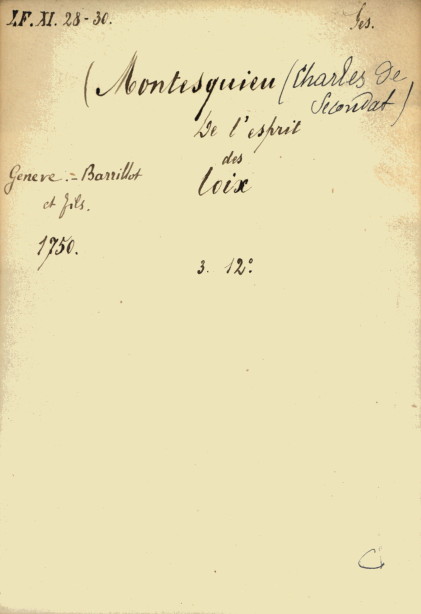 I.F. XI. 28-30. Jes.
(Montesquieu (Charles de
Secondat)
De l'esprit
des
loix
Geneve := Barrillot
et fils.
1750.
3. 12°